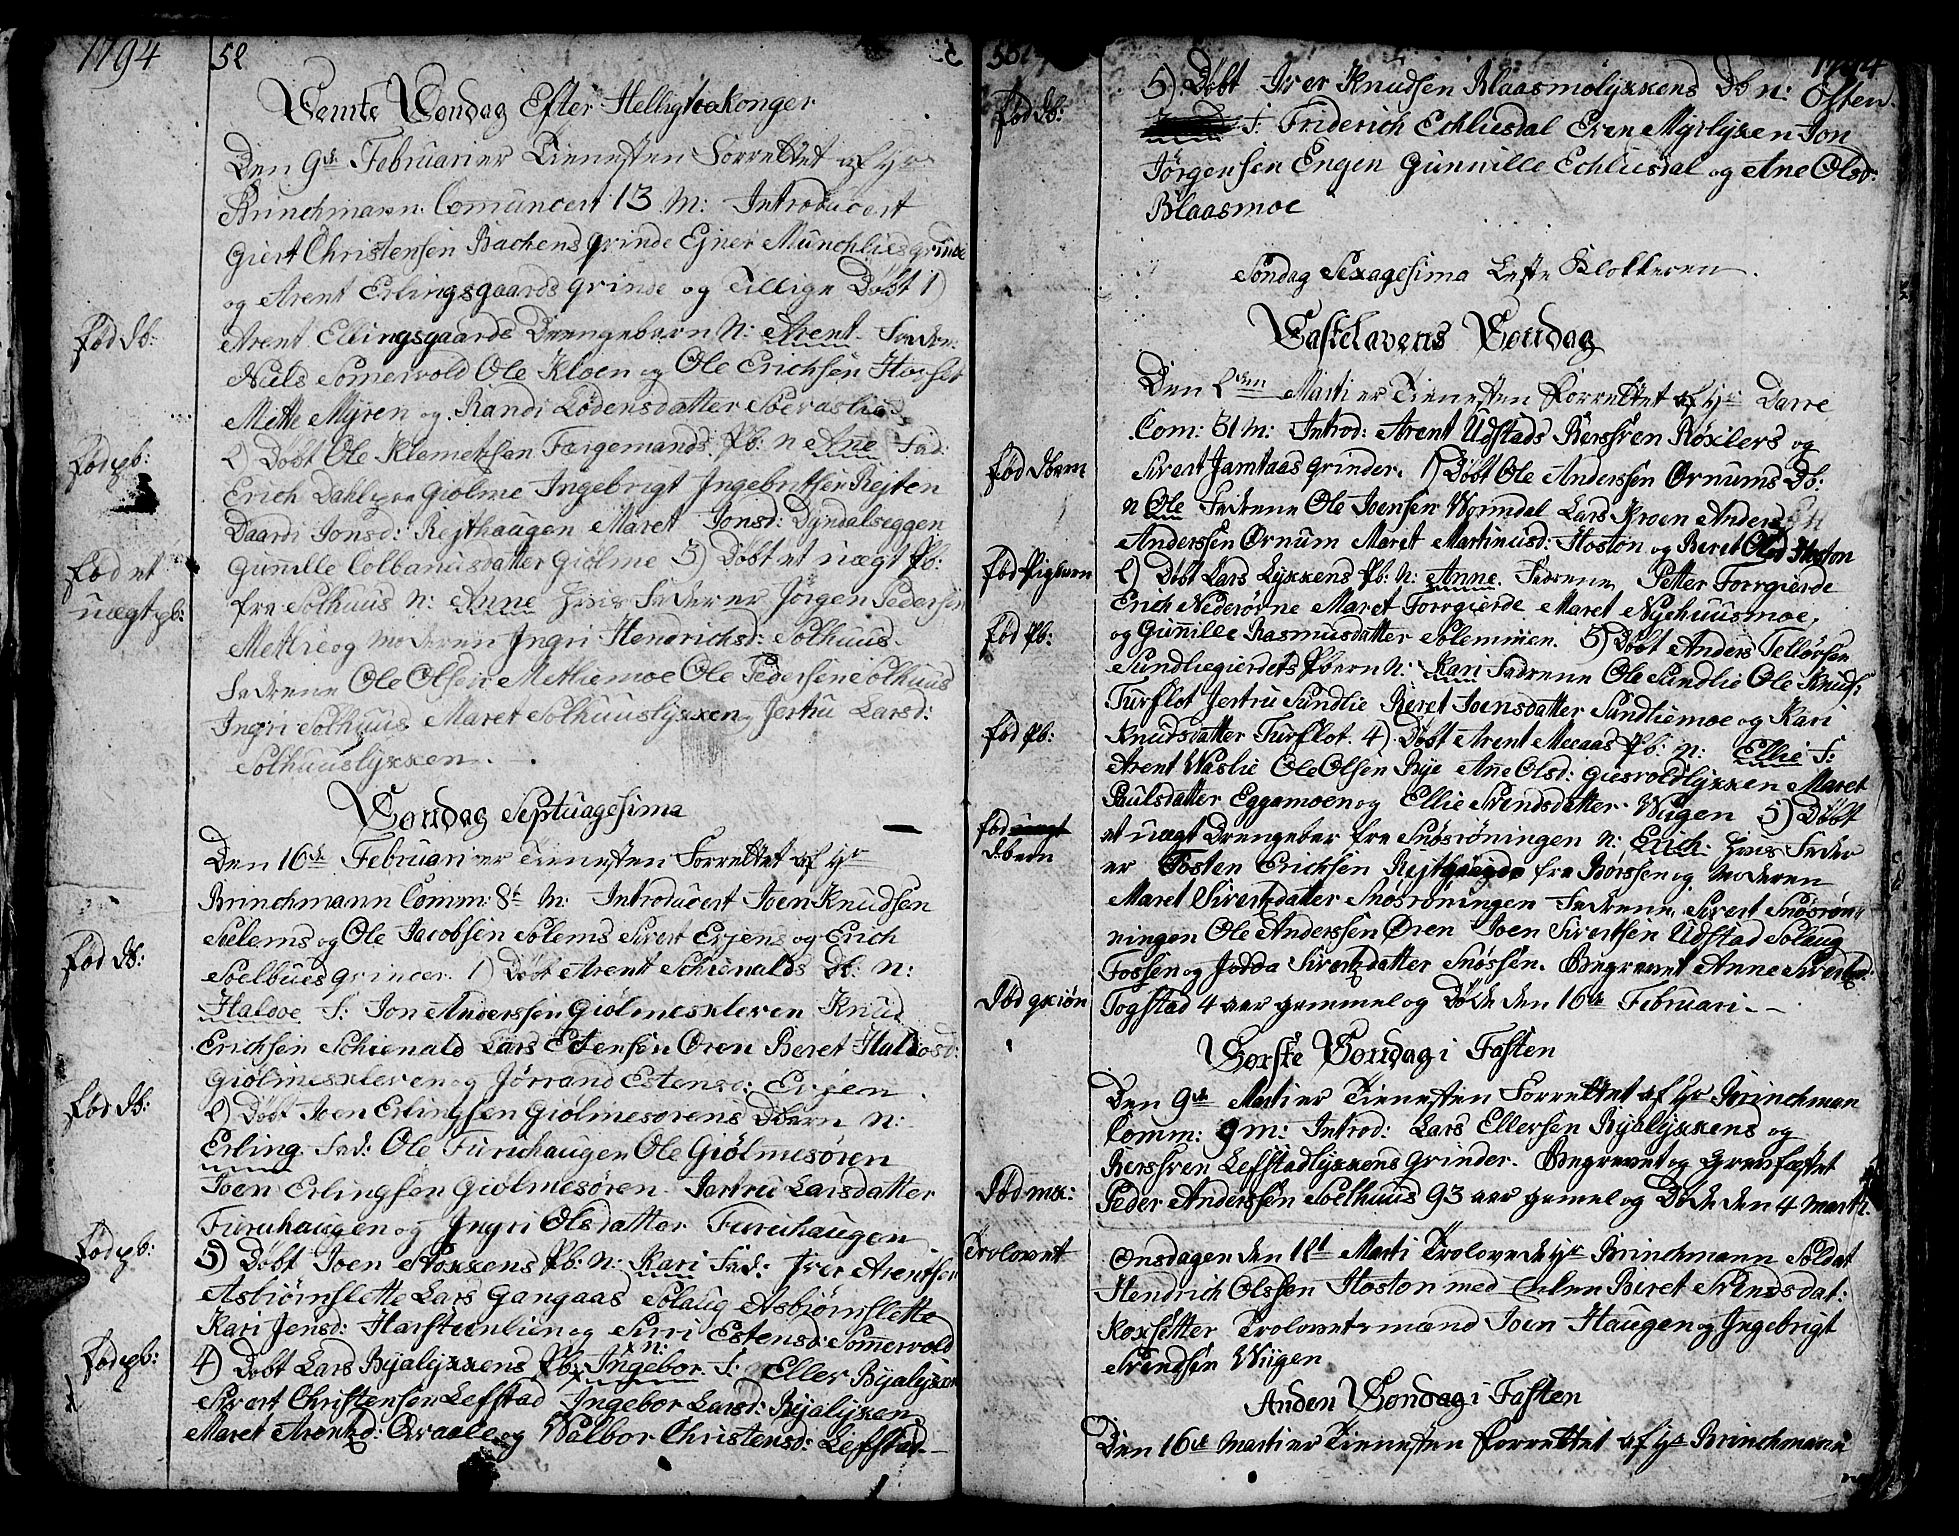 1794
52
Femte Søndag Efter Hellig 3 Konger
Den 9de Februari er Tienesten Forrettet af Hr
Brinchmann. Comuncert 13 M: Introducert
Giert Christensen Bachens grinde Ejner Munchlies grinde
og Arent Erlingsgaards grinde og Tillige Døbt 1)
fød db:
Arent Ellingsgaards Drengebarn N: Arent. Faderne:
Niels Somervold Ole Kloen og Ole Erichsen Horset
Mette Myren og Randi Lodensdatter
fød pb:
2) Døbt Ole Klemetsen Færgemands Pb: n Ane Fad:
Erich Dahl Giolme Ingebrigt Ingebritsen Rejten
Daardi Jonsd: Rejthaugen Maret Jonsd: Dyndalseggen
fød et
uægt pb:
Gunille Colbanusdatter Giolme 3) Døbt et uægt Pb:
fra Solhuus N: Anne Hvis Fader er Jørgen Pedersen
Metlie og Moderen Ingri Hendrichsd: Solhuus.
Fadrene Ole Olsen Metliemoe Ole Pedersen Solhuus
Ingri Solhuus Maret Solhuuslykken og Jertru Larsd:
Solhuuslykken.
Søndag Septuagesima
Den 16de Februari er Tienesten Forrettet af Hr
Brinchmann Comm: 8t M: Introducert Joen Knudsen
Solems og Ole Jacobsen Solems Sivert Erjens og Erich
fød db:
Soelbues grinder. 1) Døbt Arent Schienalds Db: N:
Haldoe F: Jon Anderssen Giolmeskleven Knud
Erichsen Schienald Lars Estensen Øren Beret Haldosd:
Giolmeskleven og Jørrand Estensd: Erjen.
fød db:
2) Døbt Joen Erlingsen Giolmesørens Dbarn N:
Erling. Fad: Ole Furuhaugen Ole Giølmesøren
Joen Erlingsen Giolmesøren. Jertru Larsdatter
Furuhaugen og Ingri Olsdatter Furuhaugen
fød pb:
3) Døbt Joen Pb: N: Kari Fad: Iver Arentsen
Asbiørnslette Lars Gangaas Solaug Asbiørnslette
Kari Jensd: Harsteenlien og Sirri Estensd: Somervold
fød pb:
4) Døbt Lars Byalykkens Pb: n: Ingebor. F: Eller Byalykken
Sivert Christensen Lefstad Ingebor Larsd: Byalykken
Maret Arentsd: Qvaale og Walbor Christensd: Lefstad
1794
fød db:
5) Døbt Iver Knudsen Blaasmolykkens Db n: Østen
F: Friderich Echliesdal Even Myrlyken Jon
Jørgensen Engen Gunnille Echliesdal og Ane Olsd:
Blaasmoe
Søndag Sexagesima Leste Klokkeren.
Fastelavens Søndag
Den 2den Marti er Tienesten Forrettet af Hr Darre
Com: 31 M: Introd: Arent Udstads Kerssren Røxlers og
fød dbarn
Sivert Jamtaas grinder. 1) Døbt Ole Anderssen Ørnums Db:
n Ole Fadrene Ole Joensen Worndal Lars Kroen Anders
Anderssen Ørnum Maret Martinusd: Hoston og Beret Olsd Hoston
fød Pigbarn
2) Døbt Lars Lykkens Pb: N: Anne. Fadrene Petter Forrgierde
Erich Nederørne Maret Forrgierde Maret Nyehuusmoe,
fød Pb:
og Gunnille Rasmusdatter Solemmen. 3) Døbt Anders Tellørsen
Sundliegierdets Pbarn N: Kari Fadrene Ole Sundlie Ole Knuds:
Turflot Jertru Sundlie Beret Joensdatter Sundliemoe og Kari
fød Pb:
Knudsdatter Turflot. 4) Døbt Arent Meaas Pb: n: Ellie F:
Arent Waslie Ole Olsen Bye Ane Olsd: Giesvoldlykken Maret
Paulsdatter Eggamoen og Ellie Svendsdatter Wiigen 5) Døbt
fød uægt
dbarn
et uægt Drengebar fra Snosrøningen N: Erich. Hvis Fader
er Tosten Erichsen fra Børssen og Moderen
Maret Sivertsdatter Snosrøningen Fadrene. Sivert Snosrøn
ningen Ole Anderssen Øren Joen Sivertsen Udstad Solaug
Fossen og Jodda Sivertsdatter Snossen. Begravet Anne Sivertsd:
død qkiøn
Togstad 4 aar gammel og Døde den 16de Februari.
Første Søndag i Fasten
Den 9de Marti er Tienesten Forrettet af Hr Brinchman
Comm: 9 M: Introd: Lars Ellersen Byalykkens og
Kerssren Lefstadlykkens Grinder. Begravet og
død mk:
Peder Anderssen Solhuus 93 aar gamel og Døde den 4 Marti.
Trolovet
Onsdagen den 12t Marti Trolovede Hr Brinchmann Soldat
Hendrich Olssen Hoston med Beret Svendsdat:
Koxsetter Trolovetsmænd Joen Haugen og Ingebrigt
Svendsen Wiigen
Anden Søndag i Fasten
Den 16de Marti er Tienesten Forrettet af Hr Brinchmann